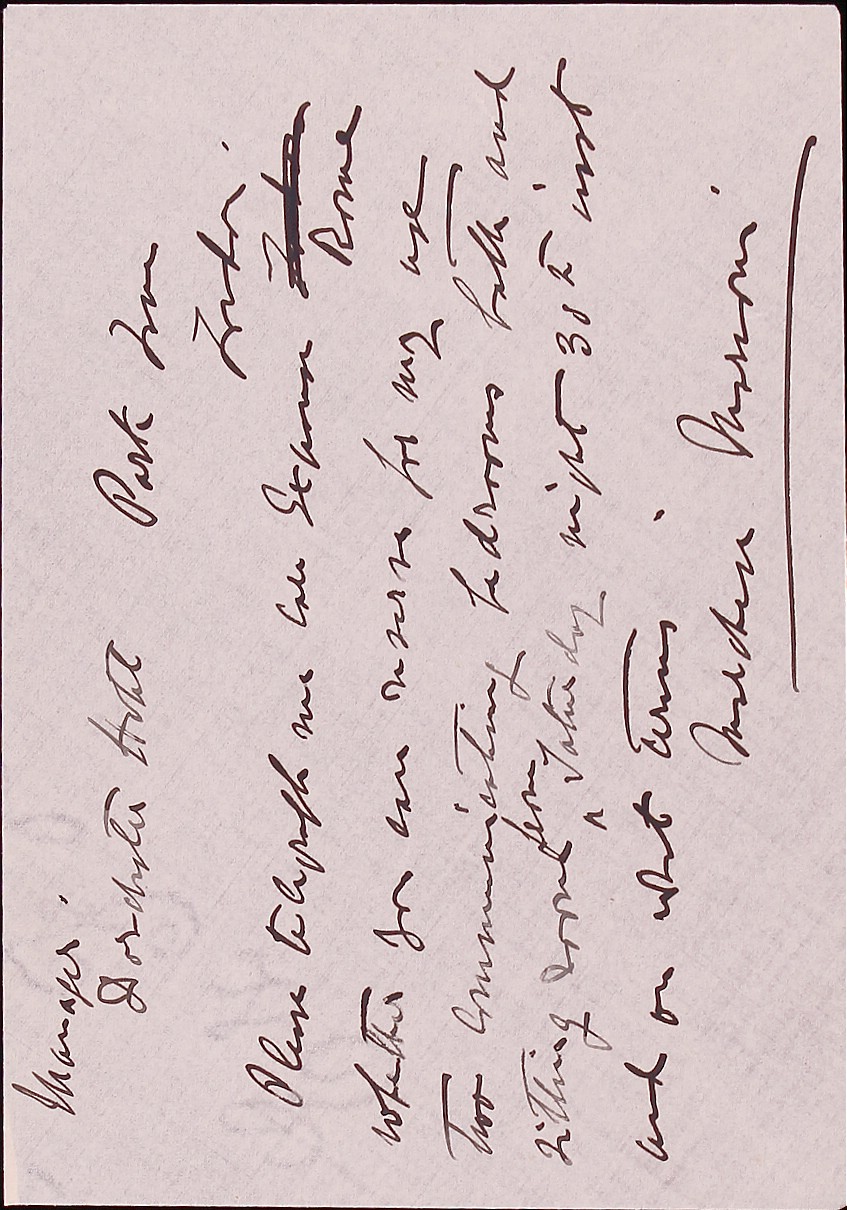 Manager.
Dorchester Hotel Park Lane
London.
Please telegraph me care Expanse
Rome
whether you can reserve for my use
two communicating bedrooms bath and
sitting room from Saturday night 30th inst
and on what terms.
Marchese Marconi